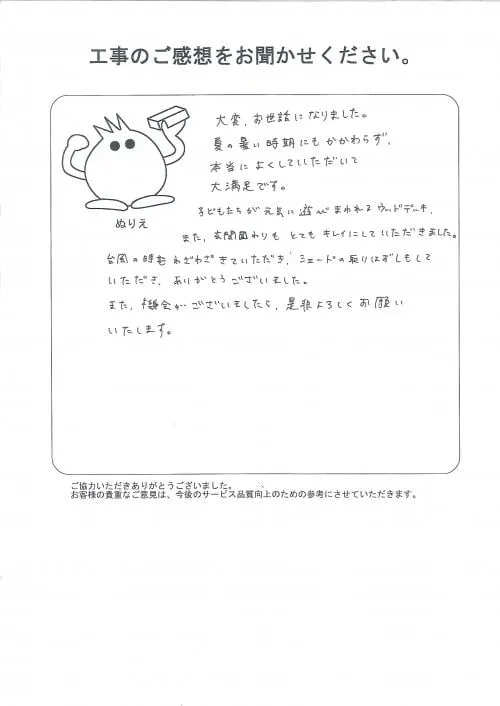 工事のご感想をお聞かせください。
大変、お世話になりました。
夏の暑い時期にもかかわらず、
本当によくしていただいて
大満足です。
ぬりえ
子どもたちが元気に遊びまわれるウッドデッキ、
また、玄関囲わりもとてもキレイにしていただきました。
台風の時もわざわざきていただき、シェードの取りはずしもして
いただき、ありがとうございました。
また、機会がございましたら、是非よろしくお願い
いたします。
ご協力いただきありがとうございました。
お客様の貴重なご意見は、今後のサービス品質向上のための参考にさせていただきます。